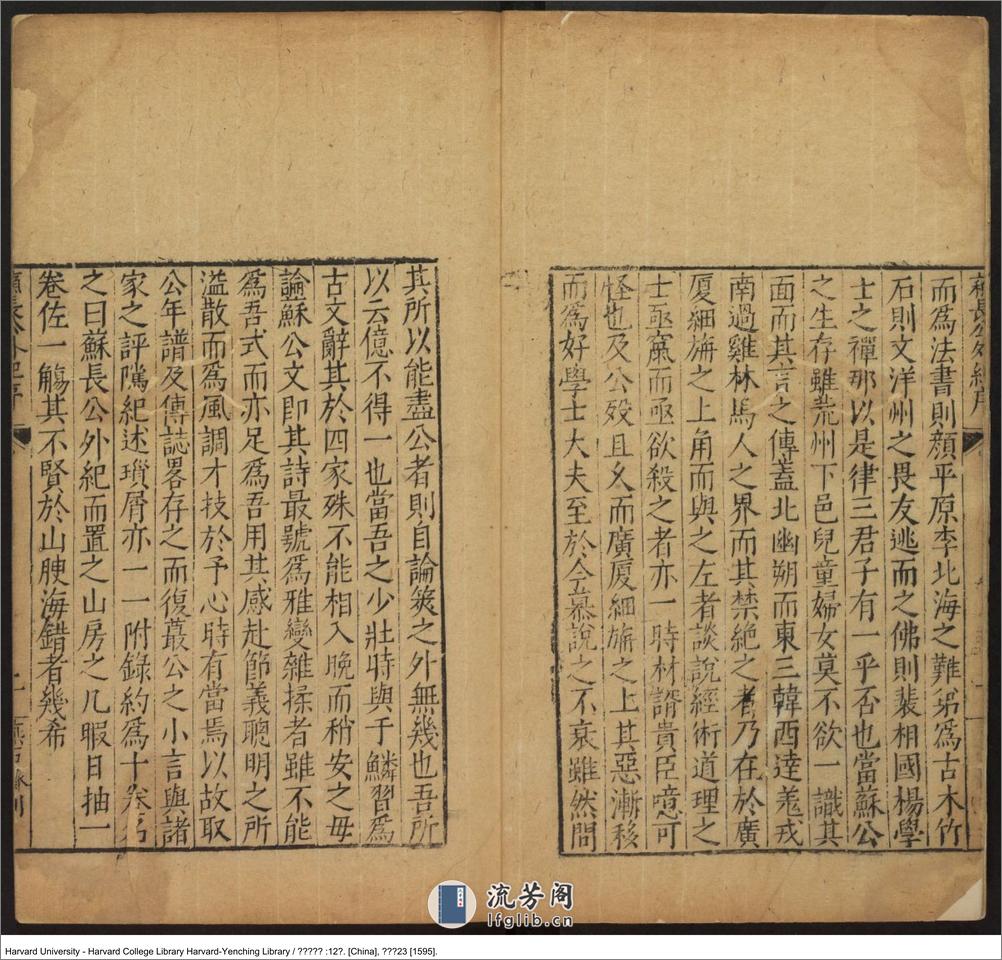 蘇長公外紀序
而爲法書則顔平原李北海之難弟爲古木竹
石則文洋州之畏友逃而之佛則裴相國楊學
士之禪那以是律三君子有一乎否也當蘇公
之生存雖荒州下邑兒童婦女莫不欲一識其
面而其言之傳蓋北幽朔而東三韓西達羗戎
南過雞林馬人之界而其禁絕之者乃在於廣
厦細旃之上角而與之左者談說經術道理之
士亟窮而亟欲殺之者亦一時材諝貴臣噫可
怪也及公歿且久而廣厦細旃之上其惡漸移
而爲好學士大夫至於今慕說之不衰雖然問
其所以能盡公者則自論策之外無幾也吾所
以云億不得一也當吾之少壯時與于鱗習爲
古文辭其於四家殊不能相入晚而稍安之毋
論蘇公文即其詩最號爲雅變雜揉者雖不能
爲吾式而亦足爲吾用其感赴節義聰明之所
溢散而爲風調才技於予心時有當焉以故取
公年譜及傳誌畧存之而復蕞公之小言與諸
家之評隲紀述瑣屑亦一一附錄約爲十卷名
之曰蘇長公外紀而置之山房之几暇日抽一
卷佐一觴其不賢於山腴海錯者幾希
蘇長公外紀序
二
流芳阁
lfglib.cn
Harvard University - Harvard College Library Harvard-Yenching Library / ????? :12?. [China], ???23 [1595].